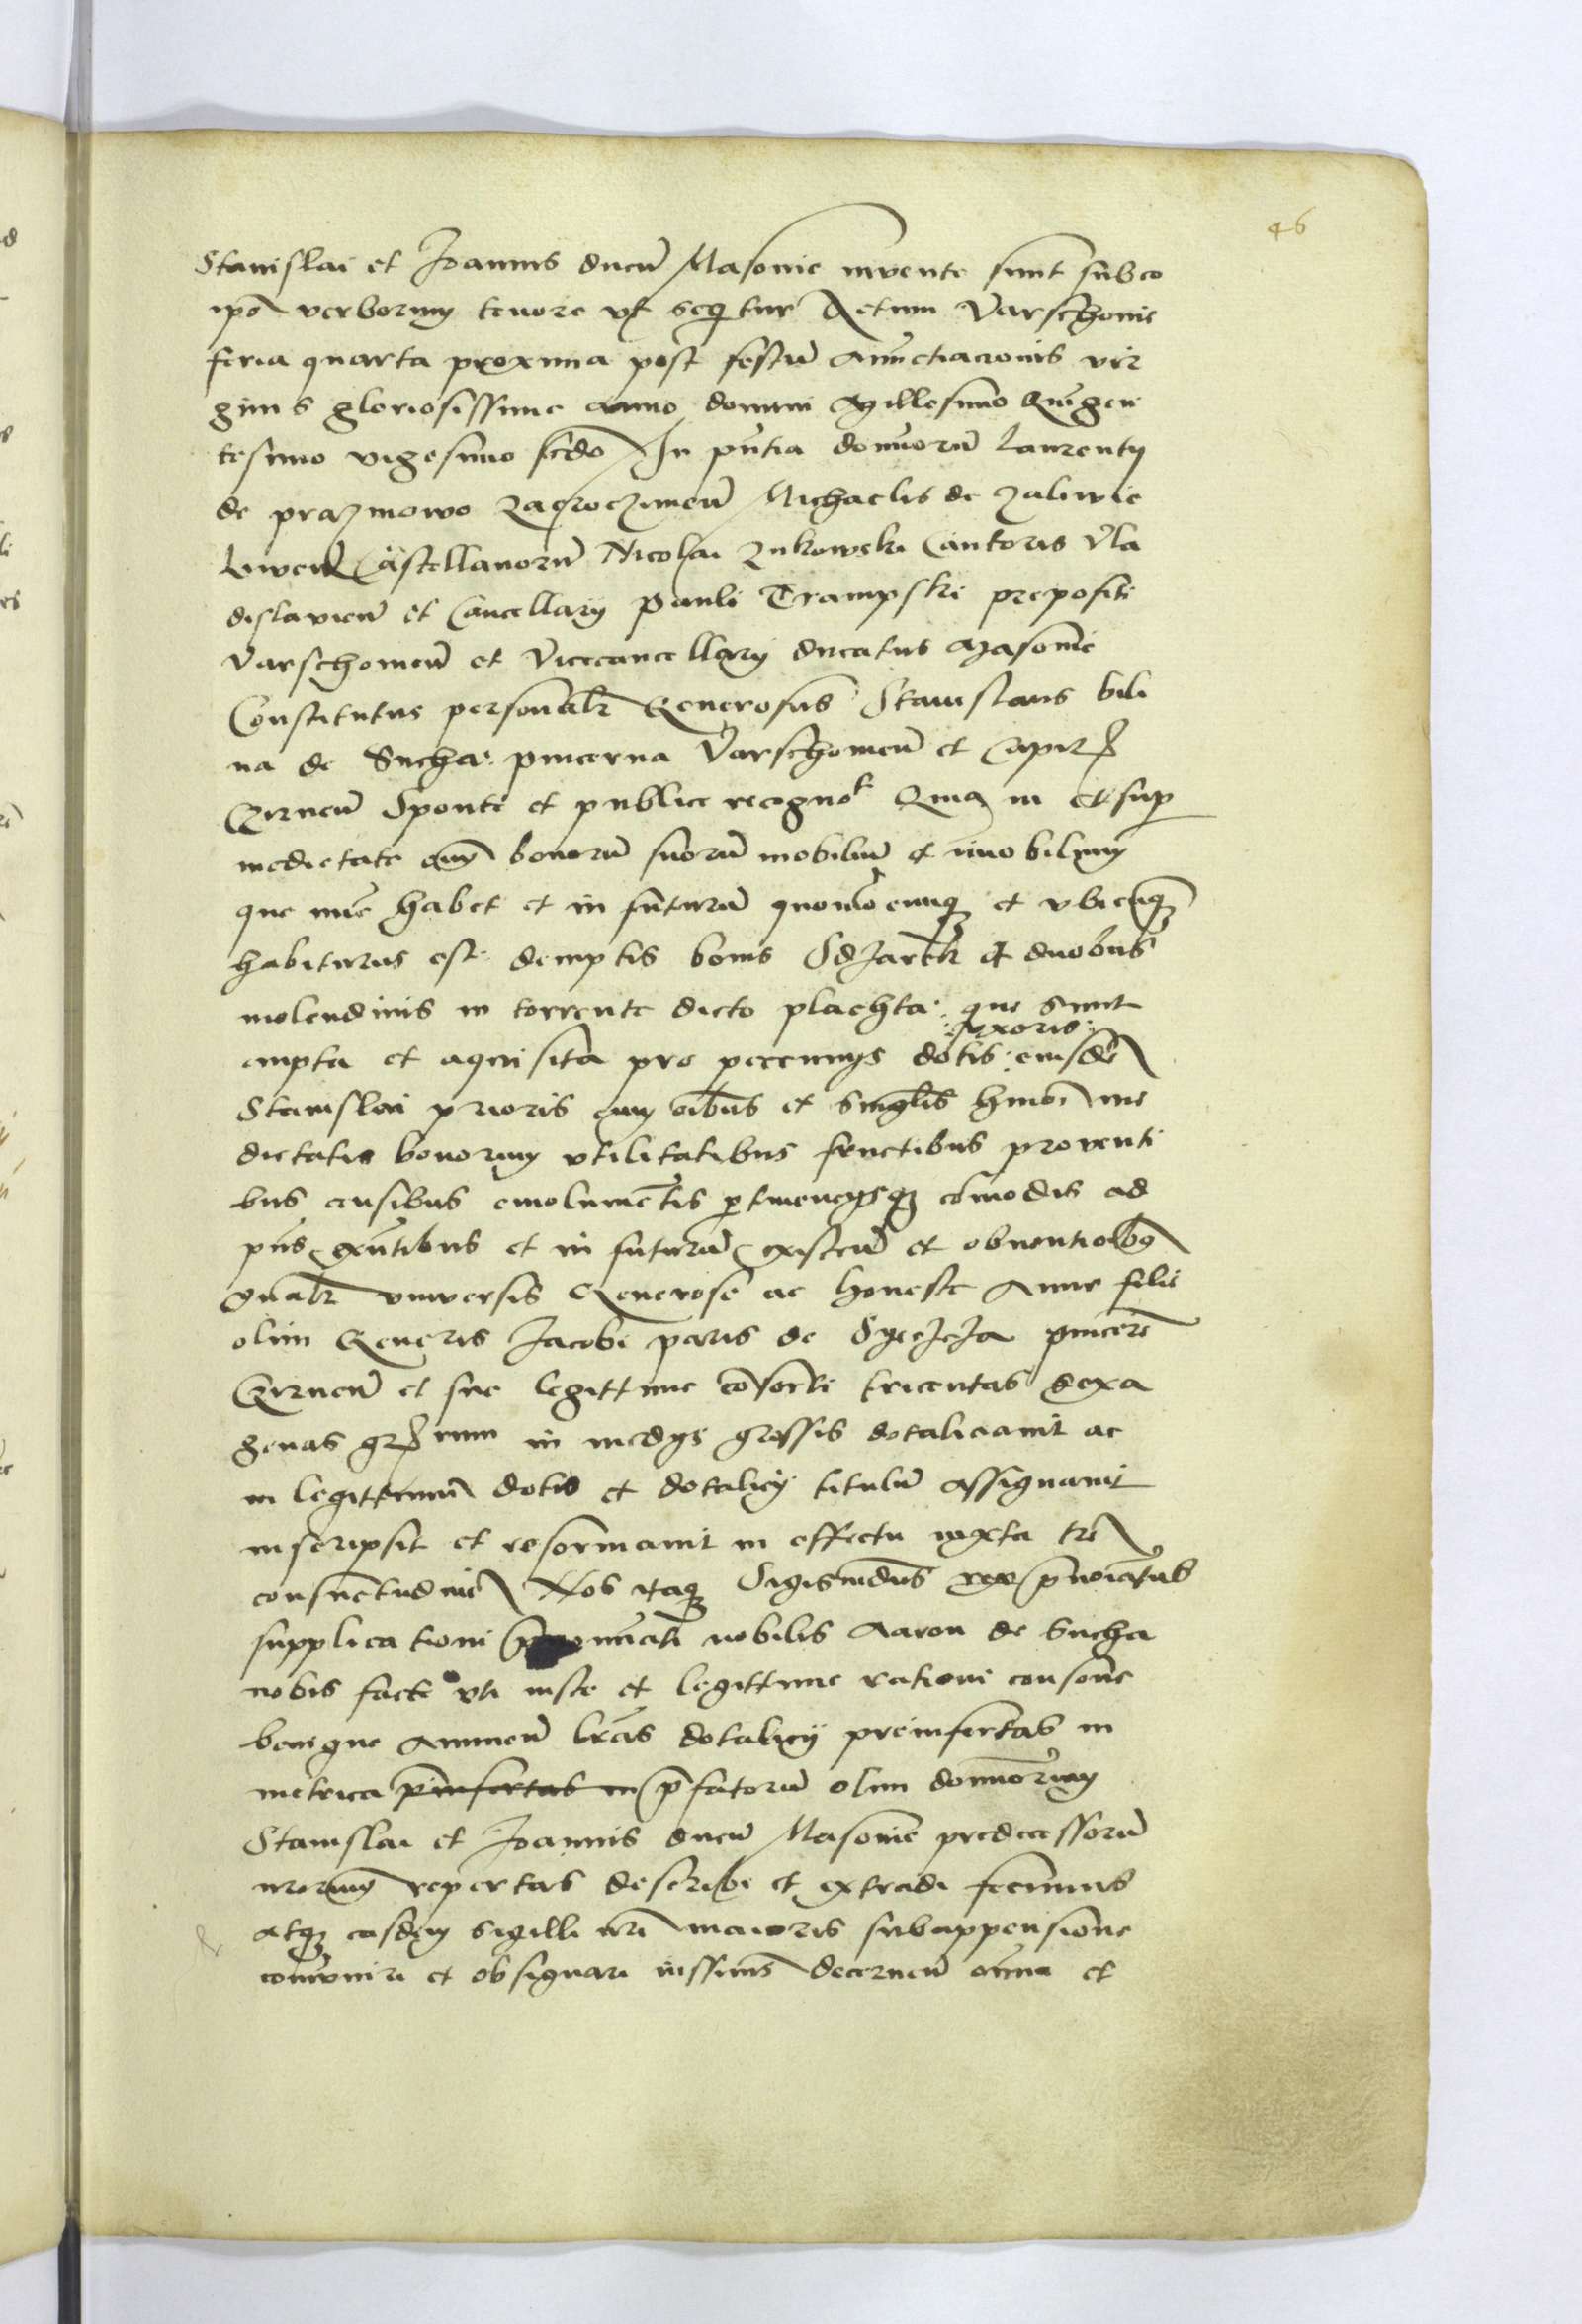 46
Stanislai et Joannis ducu͞ Masovie invente sunt sub eo
ip͞o verborum tenore vt seqtur Actum Varschovie
feria quarta proxima post festu͞ Anunctiacionis vir
ginis gloriosissime anno domini Millesimo Quingen
tesimo vigesimo sc͞do In pn͞tia domnoru͞ Laurentij
de prazmowo Zacroczimen͞ Michaelis de Zaliwie
Liwen͞ Castellanoru͞ Nicolai Zukowski Cantoris Vla
dislavien͞ et Cancellarij Pauli Trampski prepositi
Varschovien͞ et Vicecancellarij ducatus Masovie
Constitutus personal͞r Generosus Stanislaus bili
na de Sucha pincerna Varschovien͞ et Capit
Czirnen͞ Sponte et publice recognot Quia in et sup
medietate om͞ bonoru͞ suoru͞ mobiliu͞ et imobilium
que nu͞c habet et in futuru͞ quomo͞cumq et vbicu͞q
habiturus est demptis bonis et duobus
molendinis in torrente dicto plachta que sunt
uxoris
empta et aquisita pro pecunijs dotis eiusde͞
Stanislai prioris cum oi͞bus et singl͞is hmo͞i me
dietatis bonorum vtilitatibus fructibus proventi
bus censibus emolume͞tis p͞tinencijsq co͞modis ad
pn͞s exn͞tibus et in futuru͞ existen͞ et obventio͞bg
gn͞al͞r vniversis Generose ac honeste Anne filie
olim Generis Jacobi paris de pincern͞e
Czirnen͞ et sue legittime co͞sorti tricentas sexa
genas gr͞ num in medijs grossis dotaliciavit ac
in legittimu͞ dotis et dotalicij titulu͞ assignavit
inscripsit et reformavit in effectu iuxta tr͞e
consuetudine͞ Nos itaq Sigismdus rex p͞noi͞atus
supplicationi nobilis Aaron de Sucha
nobis facte vti iuste et legittime rationi consone
benigne Annuen͞ lr͞as dotalicij preinsertas in
metrica p͞insertas in p͞fatoru͞ olim domnorum
Stanislai et Joannis ducu͞ Masovie predecessoru͞
nr͞orum repertas describi et extradi fecimus
atq easdem sigilli nr͞i maioris subappensione
co͞muniri et obsignari iussim͞s decernen͞ omnia et